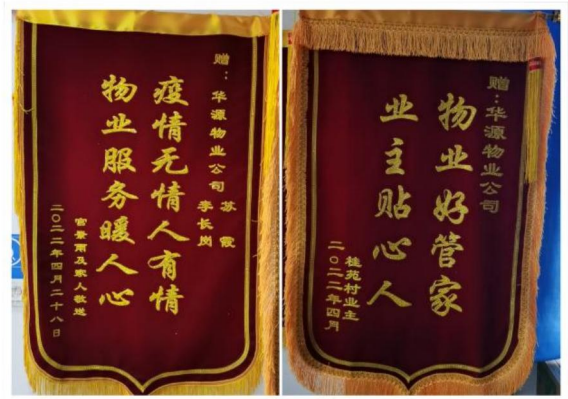 赠：华源物业公司
苏霞
李长岗
疫情无情人有情
物业服务暖人心
官景雨及家人敬送
二〇二二年四月二十八日
赠：华源物业公司
物业好管家
业主贴心人
桂苑村业主
二〇二二年四月